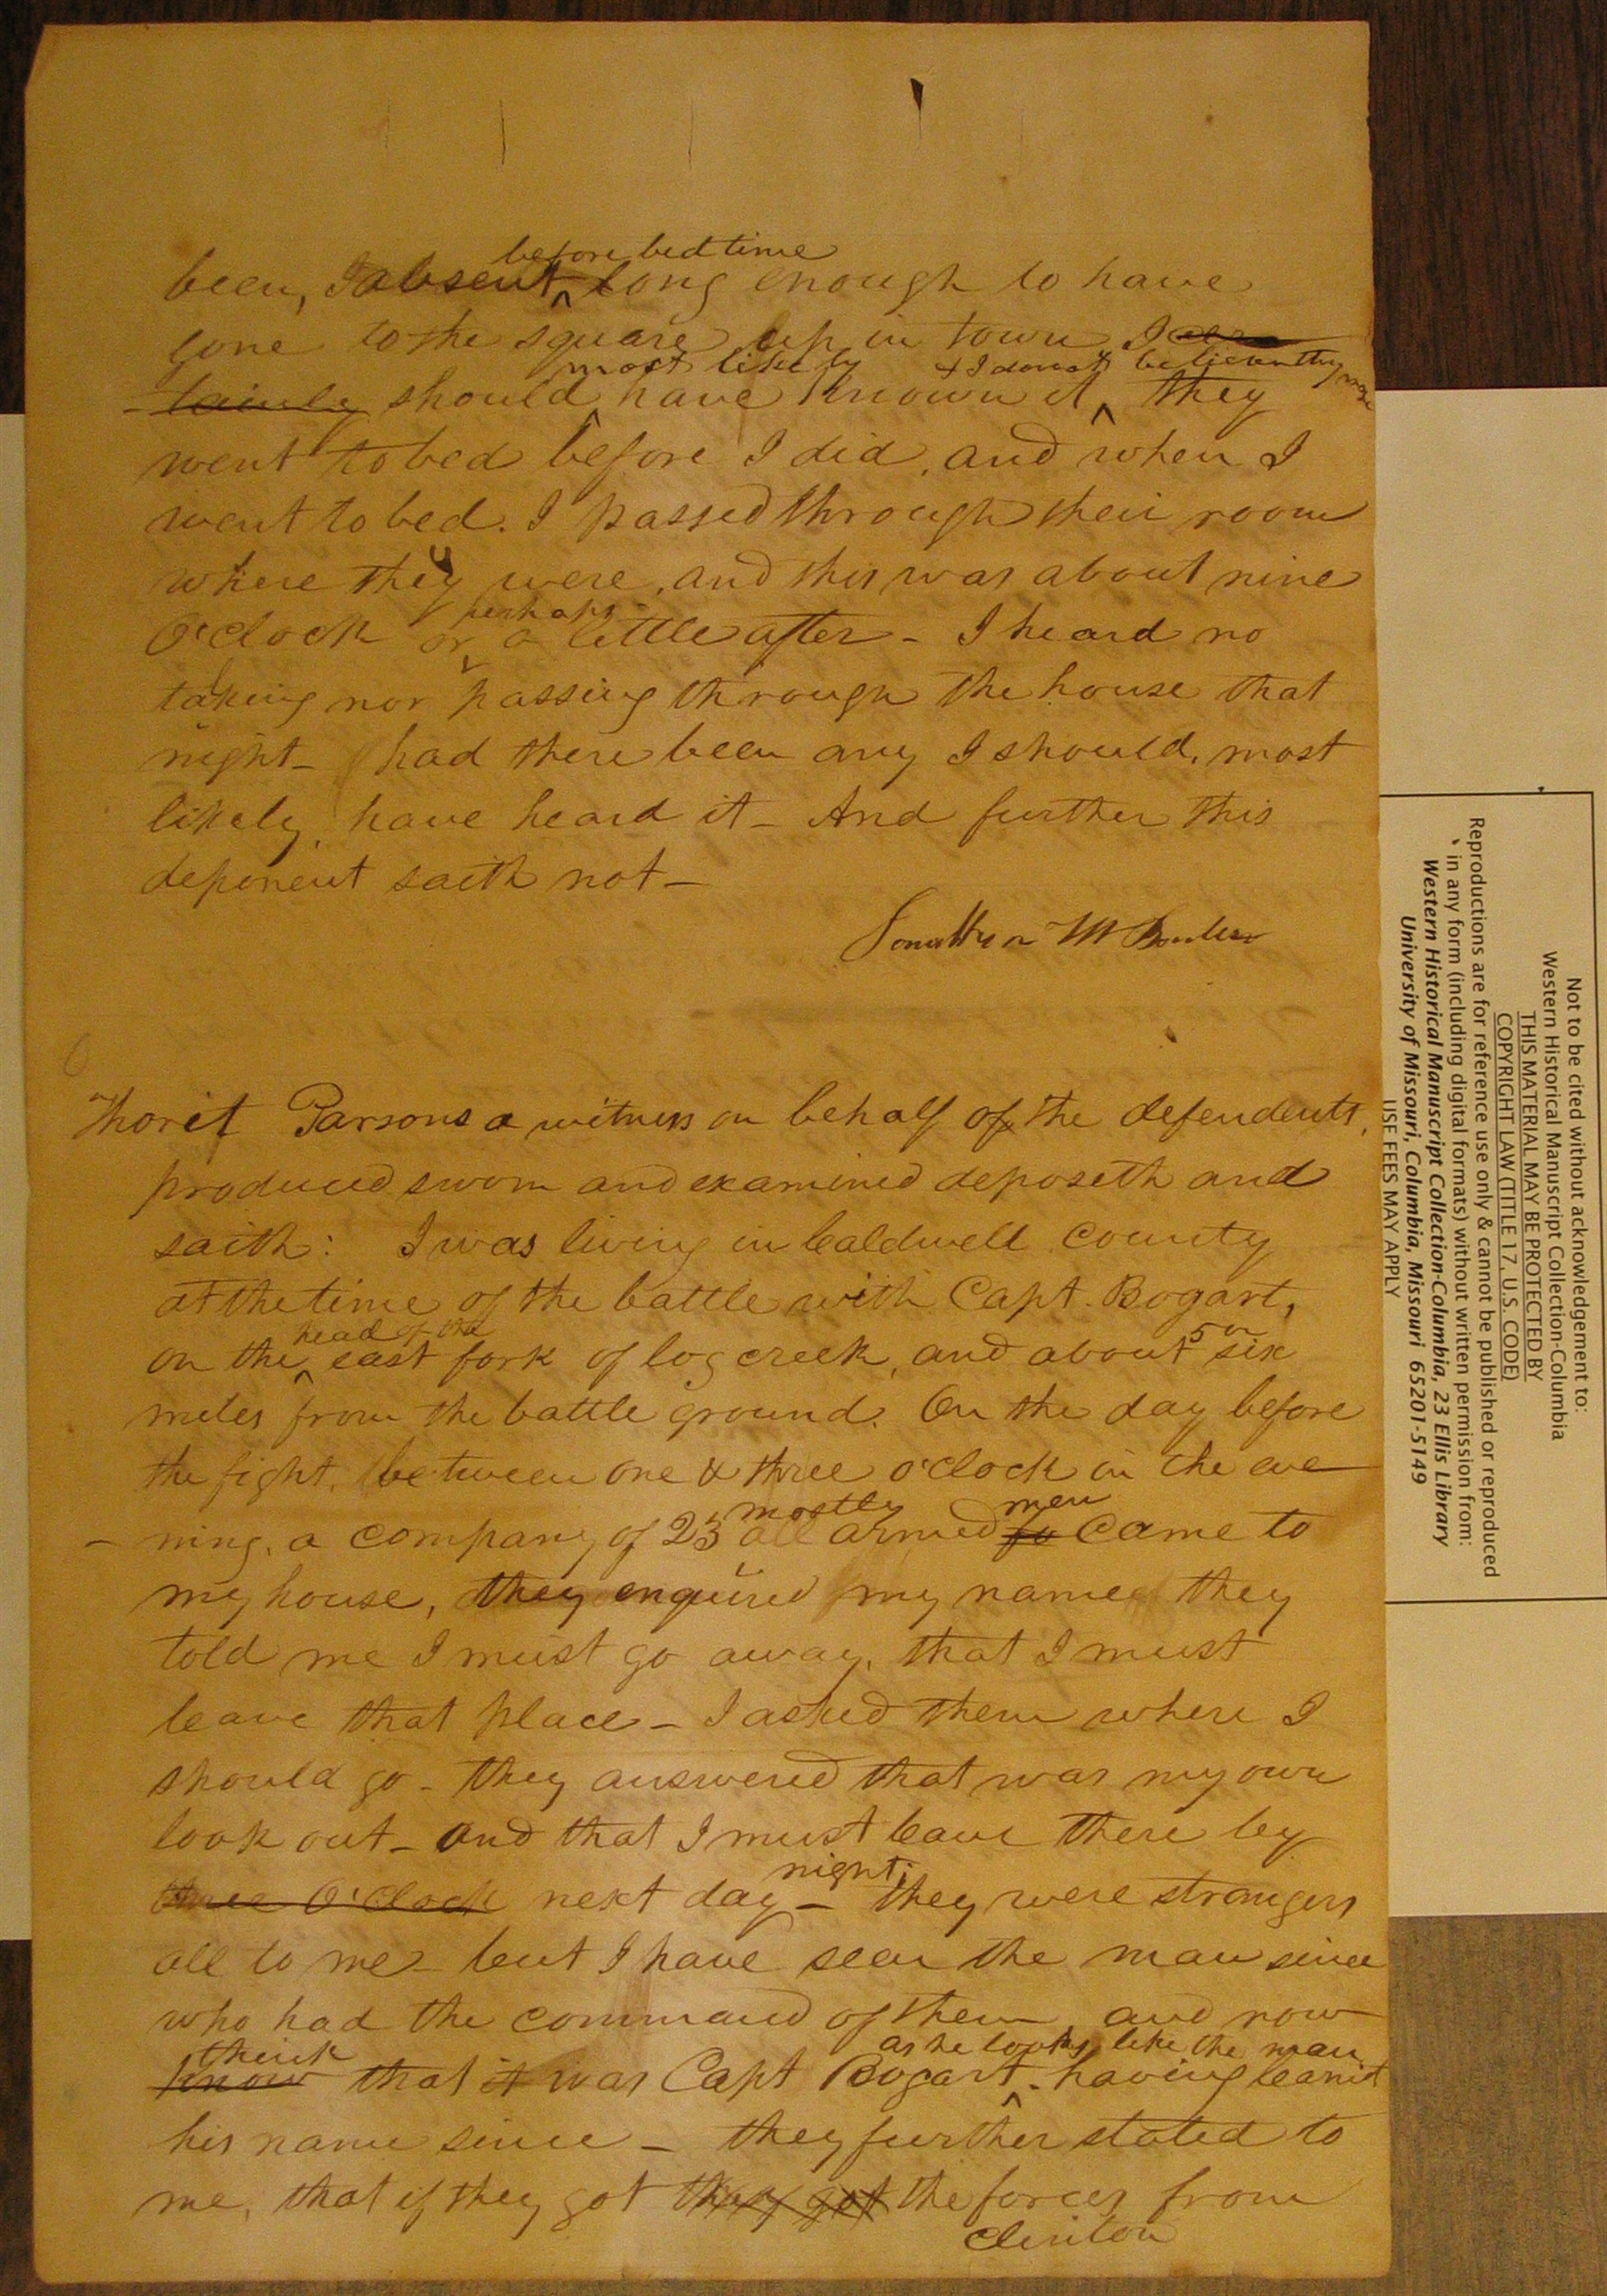 before bedtime
been, absent long enough to have
gone to the square up in town I cer
most likely & I do not believe they were
tainly should have known it, they
went to bed before I did, and when I
went to bed. I passed through their room
where they were, and this was about nine
perhaps
O'clock or a little after - I heard no
taking nor passing through the house that
night - had there been any I should, most
likely, have heard it - And further this
deponent saith not -
Thorit Parsons a witness on behalf of the defendents,
produced sworn and examined deposeth and
saith: I was living in Caldwell County
at the time of the battle with Capt. Bogart,
head of the 5 or
on the east fork of log creek, and about six
miles from the battle ground. On the day before
the fight, between one & three o'clock in the eve
mostly men
- ning, a company of 25 all armed to came to
my house, they enquired my name they
told me I must go away, that I must
leave that place - I asked them where I
should go - they answered that was my own
look out - and that I must leave there by
night;
three O'Clock next day - they were strangers
all to me - but I have seen the man since
who had the command of them, and now
think as he looks like the man
know that it was Capt Bogart - having learnt
his name since - they further stated to
me, that if they got they got the forces from
Clinton
Not to be cited without acknowledgement to:
Western Historical Manuscript Collection-Columbia
THIS MATERIAL MAY BE PROTECTED BY
COPYRIGHT LAW (TITLE 17, U.S. CODE)
Reproductions are for reference use only & cannot be published or reproduced
in any form (including digital formats) without written permission from:
Western Historical Manuscript Collection-Columbia, 23 Ellis Library
University of Missouri, Columbia, Missouri 65201-5149
USE FEES MAY APPLY